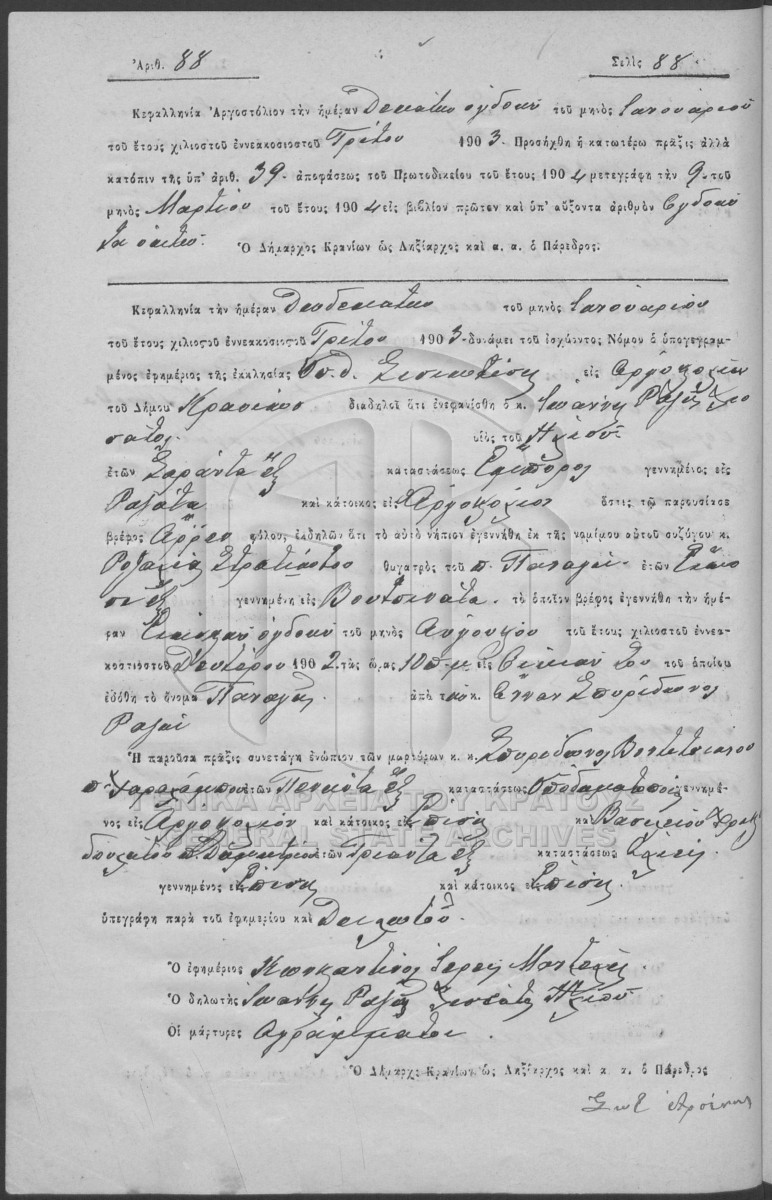 Ἀριθ. 88
Σελὶς 88
Κεφαλληνία Ἀργοστόλιον τὴν ἡμέραν Δεκάτην ὀγδόην τοῦ μηνὸς Ἰανουαρίου
τοῦ ἔτους χιλιοστοῦ ἐννεακοσιοστοῦ Τρίτου 1903. Προσήχθη ἡ κατωτέρω πρᾶξις ἀλλὰ
κατόπιν τῆς ὑπ' ἀριθ. 39 ἀποφάσεως τοῦ Πρωτοδικείου τοῦ ἔτους 1904 μετεγράφη τὴν 9 τοῦ
μηνὸς Μαρτίου τοῦ ἔτους 1904 εἰς βιβλίον πρῶτον καὶ ὑπ' αὔξοντα ἀριθμὸν Ὀγδοή
τα ὀκτώ.
Ὁ Δήμαρχος Κρανίων ὡς Ληξίαρχος καὶ α. α. ὁ Πάρεδρος.
Κεφαλληνία τὴν ἡμέραν Δωδεκάτην τοῦ μηνὸς Ἰανουαρίου
τοῦ ἔτους χιλιοστοῦ ἐννεακοσιοστοῦ Τρίτου 1903 δυνάμει τοῦ ἰσχύοντος Νόμου ὁ ὑπογεγραμ-
μένος ἐφημέριος τῆς ἐκκλησίας εἰς Ἀργοστόλιον
τοῦ Δήμου Κρανίων διαδηλοῖ ὅτι ἐνεφανίσθη ὁ κ. Ἰωάννης
υἱὸς τοῦ Ἠλίου
ἐτῶν Σαράντα ἓξ καταστάσεως Ἔμπορος γεννημένος εἰς
Ραζάτα καὶ κάτοικος εἰς Ἀργοστόλιον ὅστις τῷ παρουσίασε
βρέφος Ἄρρεν φύλου, ἐκδηλῶν ὅτι τὸ αὐτὸ νήπιον ἐγεννήθη ἐκ τῆς νομίμου αὐτοῦ συζύγου κ.
θυγατρὸς τοῦ π. Παναγῆ ἐτῶν Εἴκο
σι ἓξ γεννημένη εἰς Βουτσινάτα. τὸ ὁποῖον βρέφος ἐγεννήθη τὴν ἡμέ-
ραν Εἰκοστὴν ὀγδόην τοῦ μηνὸς Αὐγούστου τοῦ ἔτους χιλιοστοῦ ἐννεα-
κοσιοστοῦ Δευτέρου 1902 τὰς ὥρας 10 π.μ εἰς οἰκίαν του τοῦ ὁποίου
ἐδόθη τὸ ὄνομα Παναγῆς. ἀπὸ τὴν κ. Ἄνναν Σπυρίδωνος
Ἡ παροῦσα πρᾶξις συνετάγη ἐνώπιον τῶν μαρτύρων κ. κ. Σπυρίδωνος
π. Χαραλάμπου ἐτῶν Πενήντα ἓξ καταστάσεως Ὑποδηματοποιὸς γεννημέ-
νος εἰς Ἀργοστόλιον καὶ κάτοικος εἰς Ἐπίσης καὶ Βασιλείου
ἐτῶν Τριάντα ἓξ καταστάσεως
γεννημένος εἰς Ἐπίσης καὶ κάτοικος εἰς Ἐπίσης.
ὑπεγράφη παρὰ τοῦ ἐφημερίου καὶ Δηλωτοῦ.
Ὁ ἐφημέριος Κωνσταντῖνος Ἱερεὺς
Ὁ δηλωτὴς Ἰωάννης Ἠλίου
Οἱ μάρτυρες Ἀγράμματοι.
Ὁ Δήμαρχ. Κρανίων ὡς Ληξίαρχος καὶ α. α. ὁ Πάρεδρος
ΓΕΝΙΚΑ ΑΡΧΕΙΑ ΤΟΥ ΚΡΑΤΟΥΣ
GENERAL STATE ARCHIVES